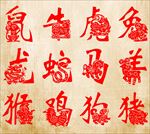 鼠牛虎兔
龙蛇马羊
猴鸡狗猪